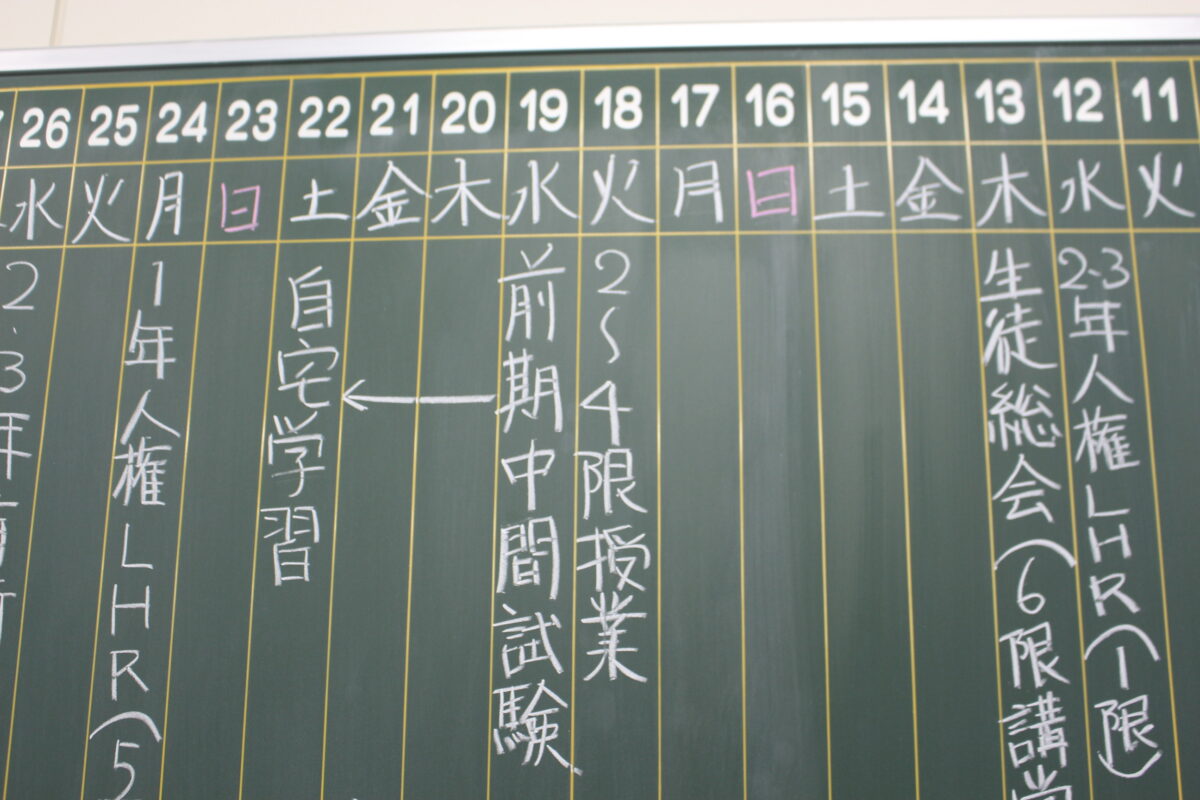 11 12 13 14 15 16 17 18 19 20 21 22 23 24 25 26
火 水 木 金 土 日 月 火 水 木 金 土 日 月 火 水
2.3年人権LHR(1限)
生徒総会(6限講
2~4限授業
前期中間試験
自宅学習
1年人権LHR(5
2.3年